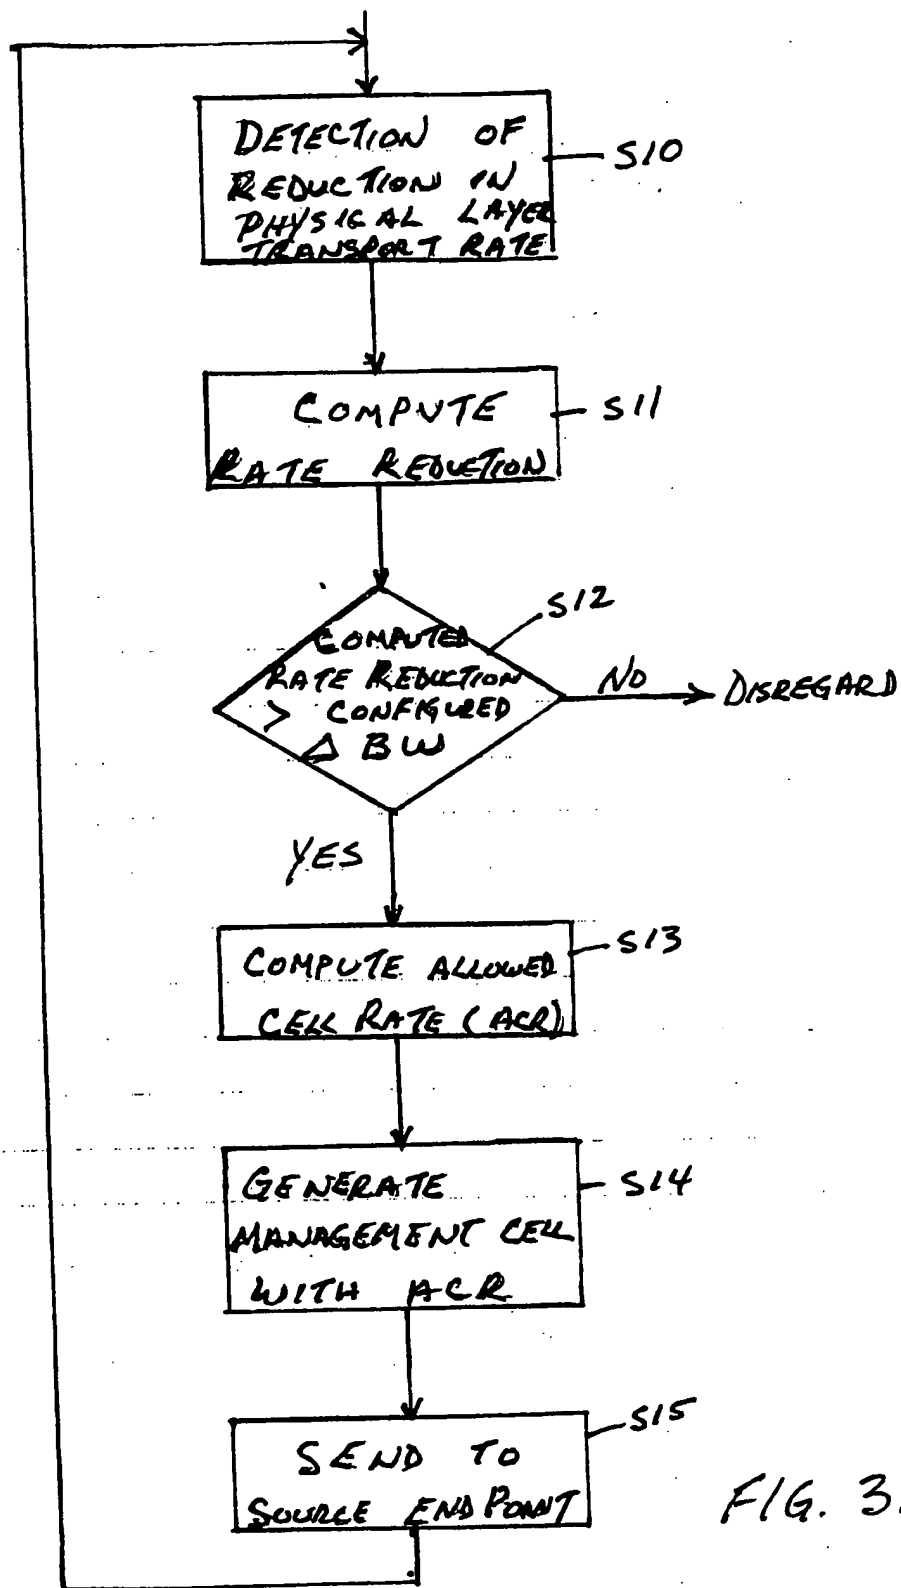 DETECTION OF
REDUCTION IN
PHYSICAL LAYER
TRANSPORT RATE
S10
COMPUTE
RATE REDUCTION
S11
COMPUTED
RATE REDUCTION
> CONFIGURED
Δ BW
S12
NO
DISREGARD
YES
COMPUTE ALLOWED
CELL RATE (ACR)
S13
GENERATE
MANAGEMENT CELL
WITH ACR
S14
SEND TO
SOURCE ENDPOINT
S15
FIG. 3.